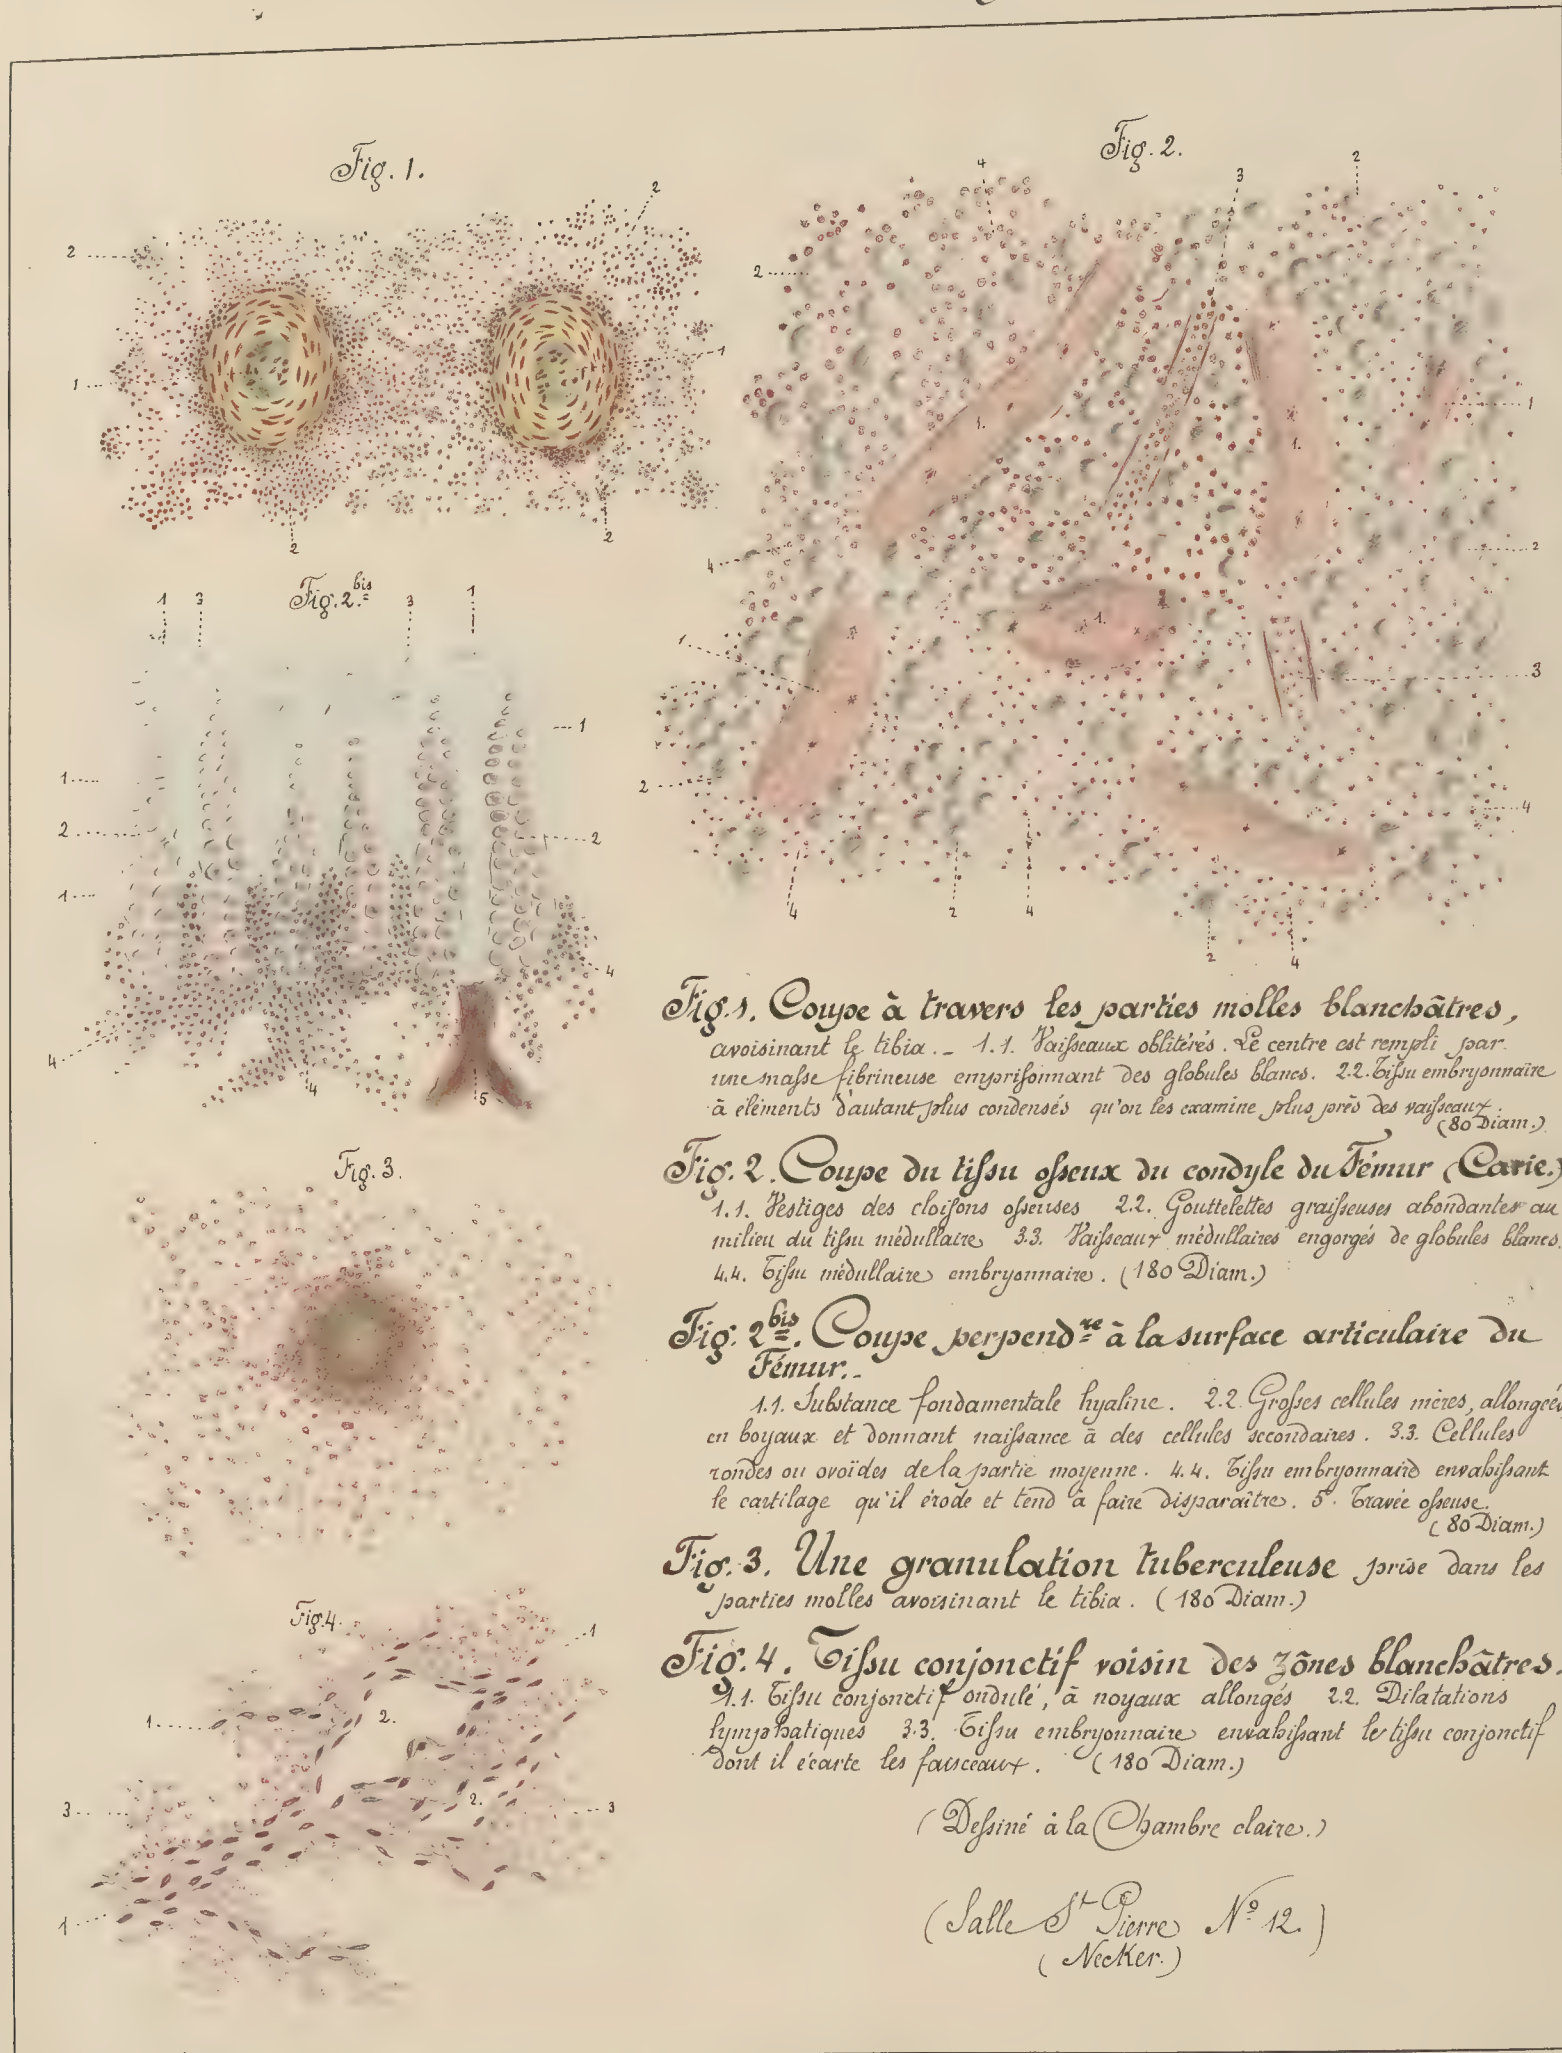 Fig. 1.
2
2
1
1
2
2
Fig. 2.
4
3
2
2
1.
1.
1
4
2
1.
1
3
2
4
4
2
4
2
4
Fig. 2.bis
1
3
3
1
1
1
2
2
1
4
4
4
5
Fig. 3.
Fig. 4.
1
1
2.
2.
3
3
1
Fig. 1. Coupe à travers les parties molles blanchâtres,
avoisinant le tibia. _ 1.1. Vaisseaux oblitérés. Le centre est rempli par
une masse fibrineuse emprisonnant des globules blancs. 2.2. Tissu embryonnaire
à éléments d'autant plus condensés qu'on les examine plus près des vaisseaux.
(80 Diam.)
Fig. 2. Coupe du tissu osseux du condyle du Fémur (Carie.)
1.1. Vestiges des cloisons osseuses 2.2. Gouttelettes graisseuses abondantes au
milieu du tissu médullaire 3.3. Vaisseaux médullaires engorgés de globules blancs.
4.4. Tissu médullaire embryonnaire. (180 Diam.)
Fig. 2bis. Coupe perpendre à la surface articulaire du
Fémur._
1.1. Substance fondamentale hyaline. 2.2. Grosses cellules mères, allongées
en boyaux et donnant naissance à des cellules secondaires. 3.3. Cellules
rondes ou ovoïdes de la partie moyenne. 4.4. Tissu embryonnaire envahissant
le cartilage qu'il érode et tend à faire disparaître. 5. Travée osseuse.
(80 Diam.)
Fig. 3. Une granulation tuberculeuse prise dans les
parties molles avoisinant le tibia. (180 Diam.)
Fig. 4. Tissu conjonctif voisin des zônes blanchâtres.
1.1. Tissu conjonctif ondulé, à noyaux allongés 2.2. Dilatations
lymphatiques 3.3. Tissu embryonnaire envahissant le tissu conjonctif
dont il écarte les faisceaux. (180 Diam.)
(Dessiné à la Chambre claire.)
(Salle St Pierre No 12.)
(Necker.)